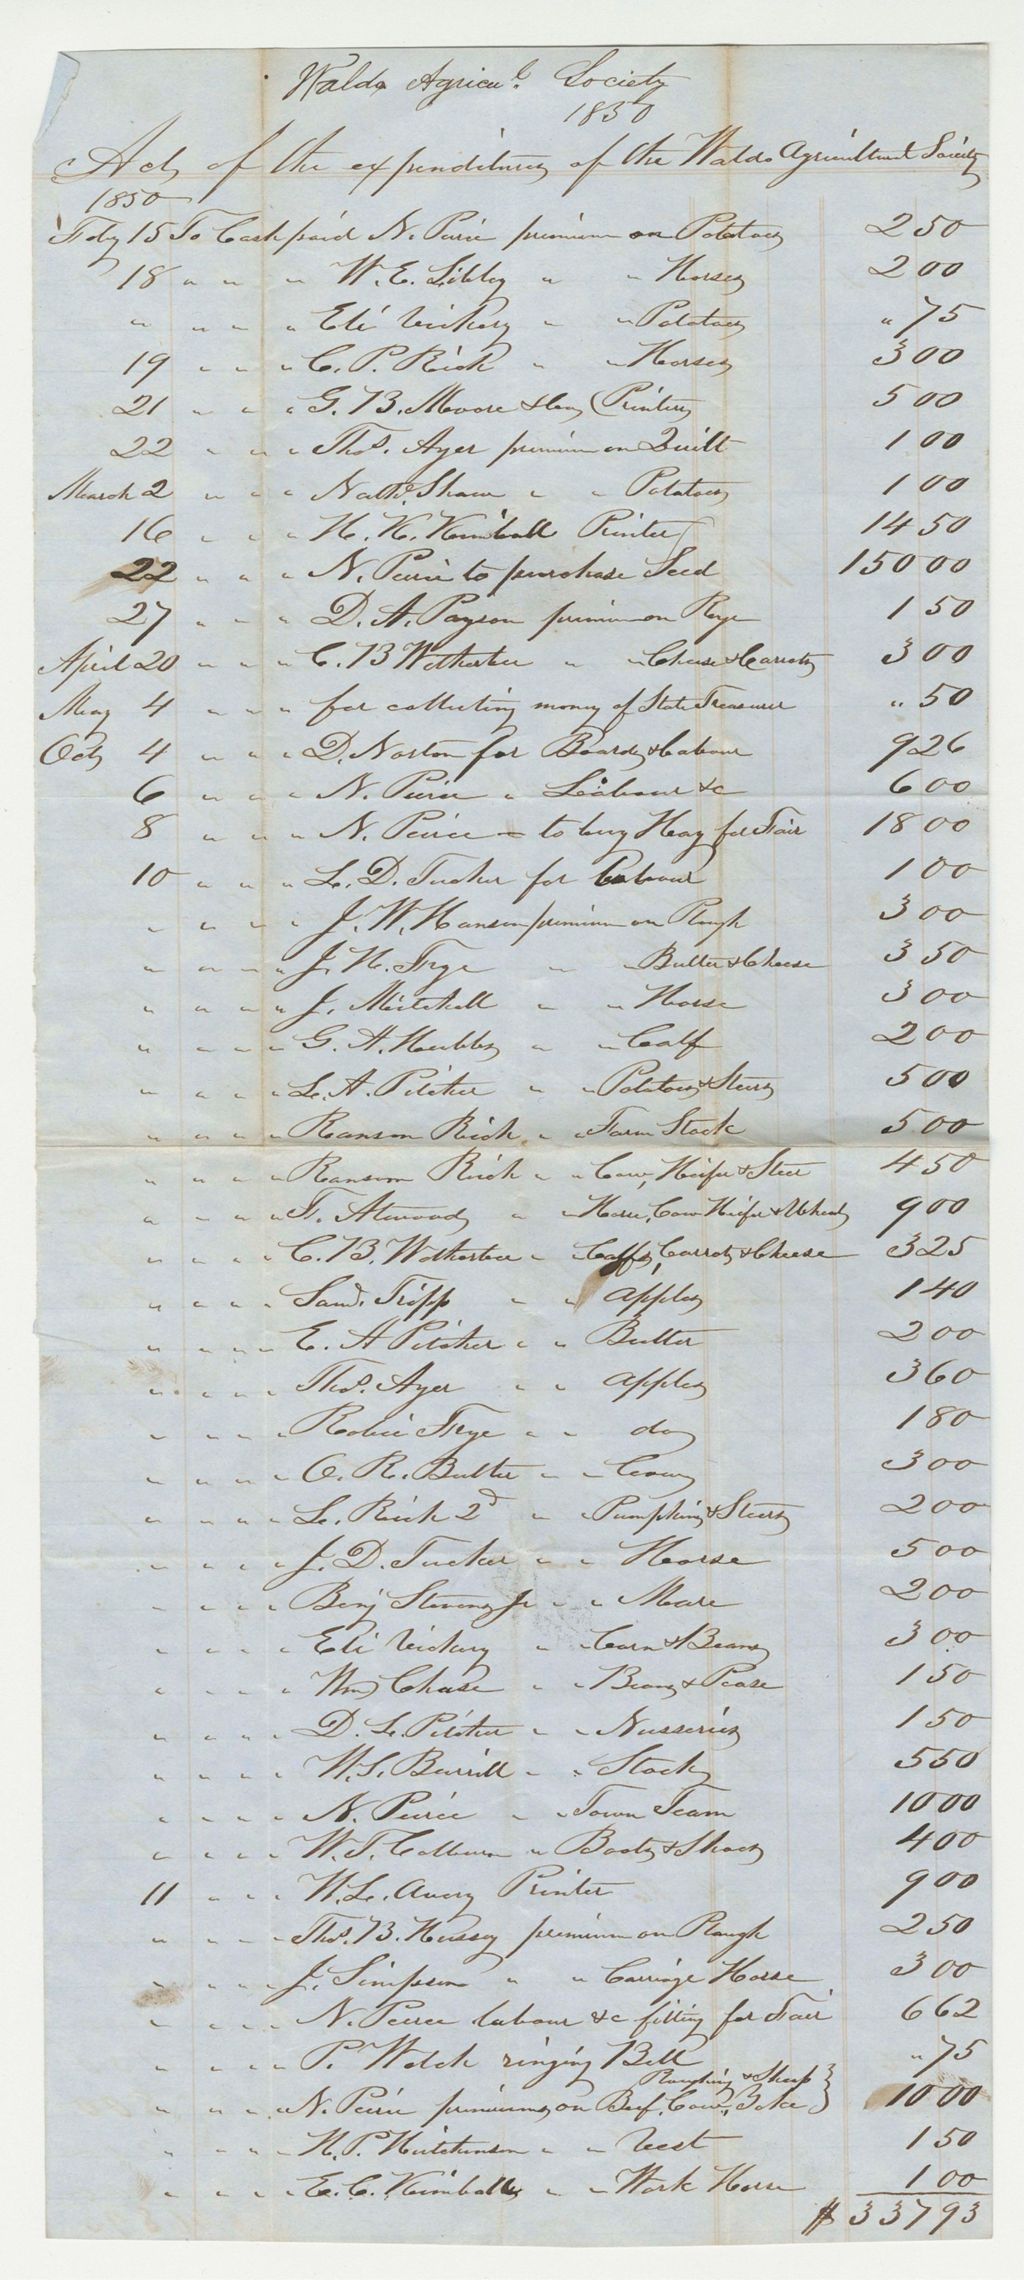 Waldo Agricul. Society
1850
Act of the expenditures of the Waldo Agricultural Society
1850
Feby 15 To Cash paid N. Peirce premium on Potatoes 2 50
18 " " " W. E. Libbey " " Horses 2 00
" " " " Eli Vickery " " Potatoes " 75
19 " " " C. P. Rich " " Horses 3 00
21 " " " G. B. Moore & Coy (Printers 5 00
22 " " " Thos. Ayer premium on Quilt 1 00
March 2 " " " Nathl. Shaw " " Potatoes 1 00
16 " " " H. K. Kimball Printer 14 50
22 " " " N. Peirce to purchase Seed 150 00
27 " " " D. A. Payson premium on Rye 1 50
April 20 " " " C. B Wetherbee " " Cheese & Carrots 3 00
May 4 " " " for collecting money of State Treasurer " 50
Octr 4 " " " D. Norton for Boards & Labour 9 26
6 " " " N. Peirce " Labour &c 6 00
8 " " " N. Peirce - to buy Hay for Fair 18 00
10 " " " L. D. Tucker for Labour 1 00
" " " " J. W. Hanson premium on Plough 3 00
" " " " J. H. Frye " " Butter & Cheese 3 50
" " " " J. Mitchell " " Horse 3 00
" " " " G. A. Hubbs " " Calf 2 00
" " " " L. A. Pitcher " " Potatoes & Steers 5 00
" " " " Ransom Rich " " Farm Stock 5 00
" " " " Ransom Rich " " Cow, Heifer & Steer 4 50
" " " " F. Atwood " " Horse, Cow Heifer & Wheat 9 00
" " " " C. B. Wetherbee " Calfs, Carrots & Cheese 3 25
" " " " Saml. Tripp " " apples 1 40
" " " " E. A Pitcher " " Butter 2 00
" " " " Thos. Ayer " " apples 3 60
" " " " Robie Frye " " do 1 80
" " " " O. R. Butler " " Cows 3 00
" " " " L. Rich 2d " " Pumpkins & Steers 2 00
" " " " J. D. Tucker " " Horse 5 00
" " " " Benj Stevens Jr " " Mare 2 00
" " " " Eli Vickery " Corn & Beans 3 00
" " " " Wm Chase " " Beans & Pease 1 50
" " " " D. L. Pitcher " " Nurseries 1 50
" " " " W. S. Burrill " " Stock 5 50
" " " " N. Peirce " Town Team 10 00
" " " " W. T. Colburn " Boots & Shoes 4 00
11 " " " W. L. Avery Printer 9 00
" " " " Thos. B. Hussey premium on Plough 2 50
" " " " J. Simpson " " Carriage Horse 3 00
" " " " N. Peirce labour &c fitting for Fair 6 62
" " " " P. Welch ringing Bell " 75
Ploughing & Sheep }
" " " " N. Peirce premiums on Beef, Cow, 10 00
" " " " H. P. Hutchinson " " Vest 1 50
" " " " E. C. Kimball " " Work Horse 1 00
$ 337 93